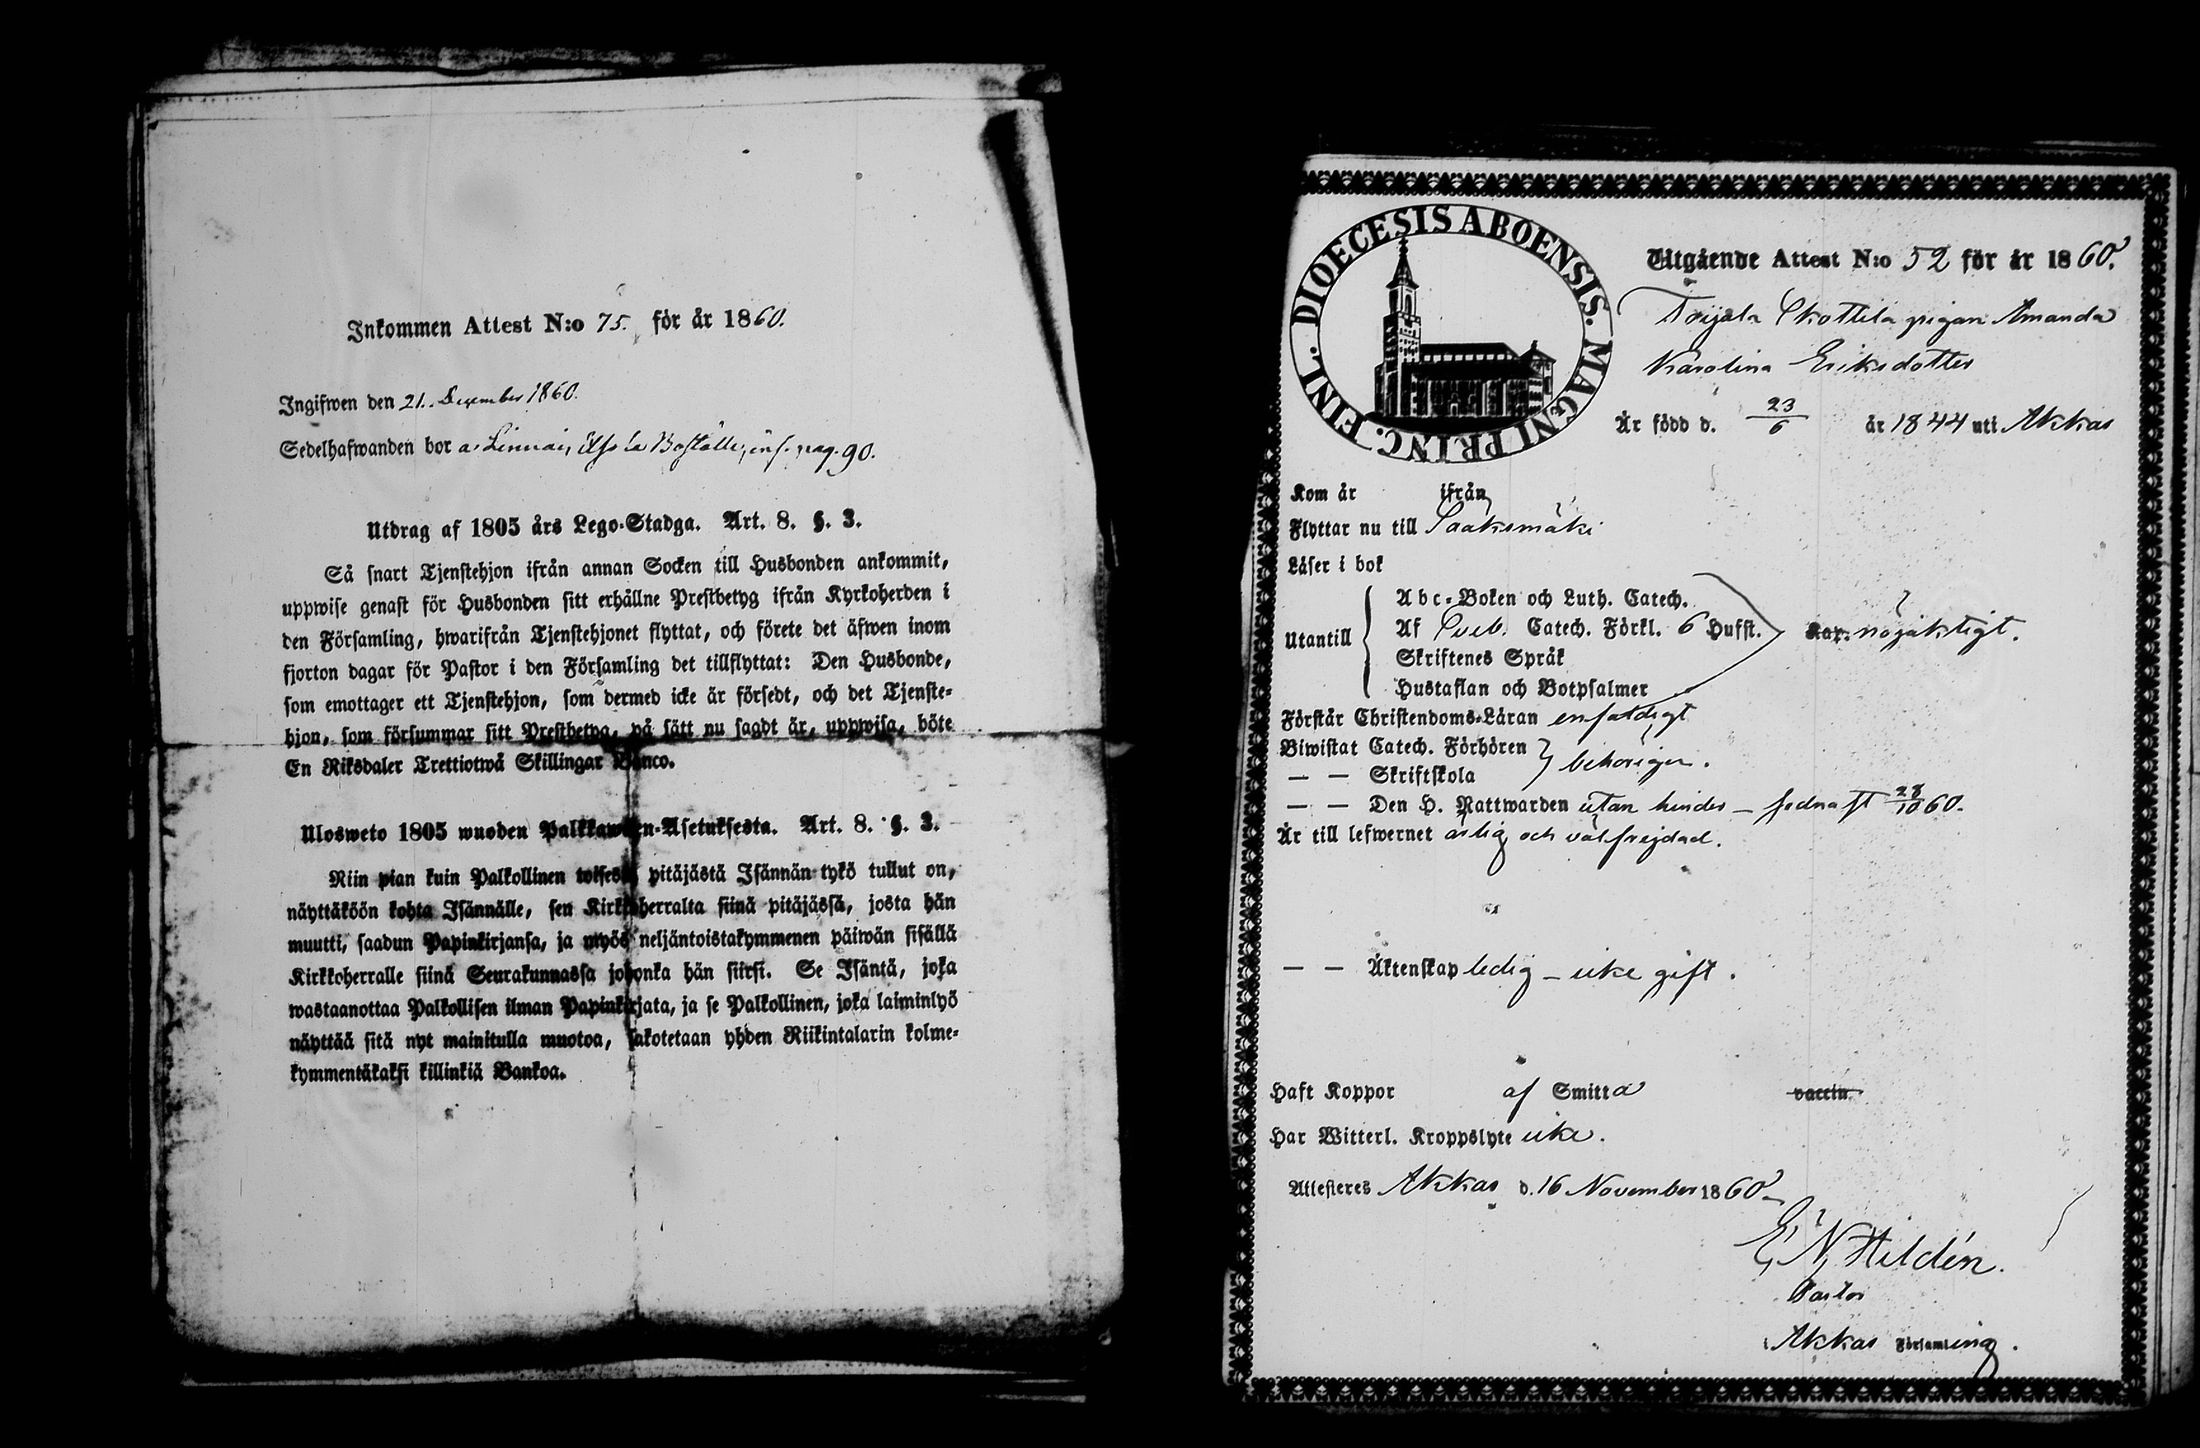 Inkommen Attest N:o 75. för år 1860.
Ingifwen den 21. December 1860.
Sedelhafwanden bor a. Linnais, Boställe, inf. pag. 90.
Utdrag af 1805 års Lego-Stadga. Art. 8. §. 3.
Så snart Tjenstehjon ifrån annan Socken till Husbonden ankommit,
uppwise genast för Husbonden sitt erhållne Prestbetyg ifrån Kyrkoherden i
den Församling, hwarifrån Tjenstehjonet flyttat, och förete det äfwen inom
fjorton dagar för Pastor i den Församling det tillflyttat: Den Husbonde,
som emottager ett Tjenstehjon, som dermed icke är försedt, och det Tjenste-
hjon, som försummar sitt Prestbetyg, på sätt nu sagdt är, uppwisa, böte
En Riksdaler Trettiotwå Skillingar Banco.
Ulosweto 1805 wuoden Palkkawäen-Asetuksesta. Art. 8. §. 3.
Niin pian kuin Palkollinen toisesta pitäjästä Isännän tykö tullut on,
näyttäköön kohta Isännälle, sen Kirkkoherralta siinä pitäjässä, josta hän
muutti, saadun Papinkirjansa, ja myös neljäntoistakymmenen päiwän sisällä
Kirkkoherralle siinä Seurakunnassa johonka hän siirsi. Se Isäntä, joka
wastaanottaa Palkollisen ilman Papinkirjata, ja se Palkollinen, joka laiminlyö
näyttää sitä nyt mainitulla muotoa, sakotetaan yhden Riikintalarin kolme-
kymmentäkaksi killinkiä Bankoa.
DIOECESIS ABOENSIS. MAGNI PRINC. FINL.
Utgående Attest N:o 52 för år 1860.
Toijala Skottila pigan Amanda
Karolina Eriksdotter
Är född d. 23/6 år 1844 uti Akkas
Kom år ifrån
Flyttar nu till Sääksmäki
Läser i bok
Utantill
Abc-Boken och Luth. Catech.
Af Sveb. Catech. Förkl. 6 Hufst.
Skriftenes Språk
Hustaflan och Botpsalmer
nöjaktigt.
Förstår Christendoms-Läran enfaldigt
Biwistat Catech. Förhören
— — Skriftskola
behörigen.
— — Den H. Nattwarden utan hinder — sednast 28/10 60.
Är till lefwernet ärlig och välfrejdad.
— — Äktenskap ledig — icke gift.
Haft Koppor af Smitta vaccin.
Har Witterl. Kroppslyte icke.
Attesteres Akkas d. 16 November 1860
E. N. Hildén.
Pastor
i Akkas Församling.